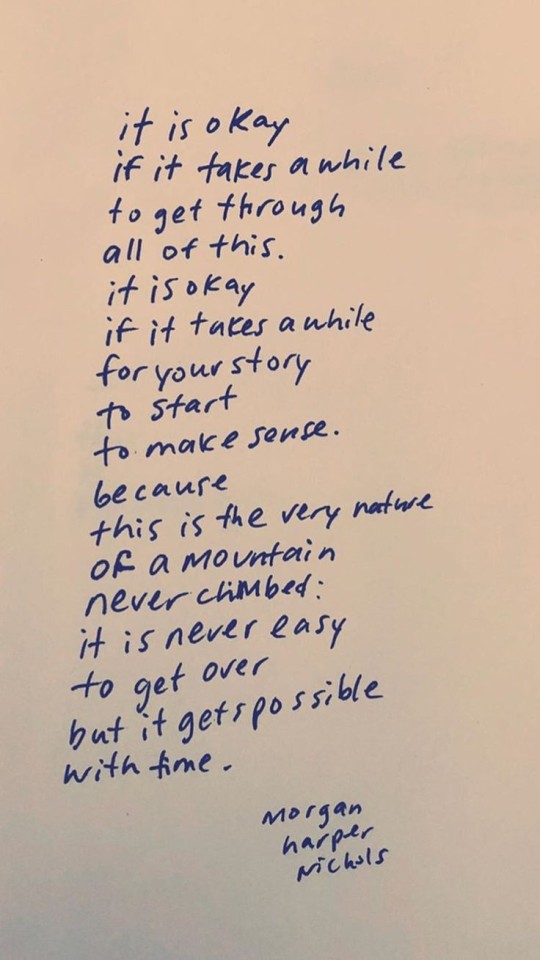 it is okay
if it takes a while
to get through
all of this.
it is okay
if it takes a while
for your story
to start
to make sense.
because
this is the very nature
of a mountain
never climbed:
it is never easy
to get over
but it gets possible
with time.
morgan
harper
nichols